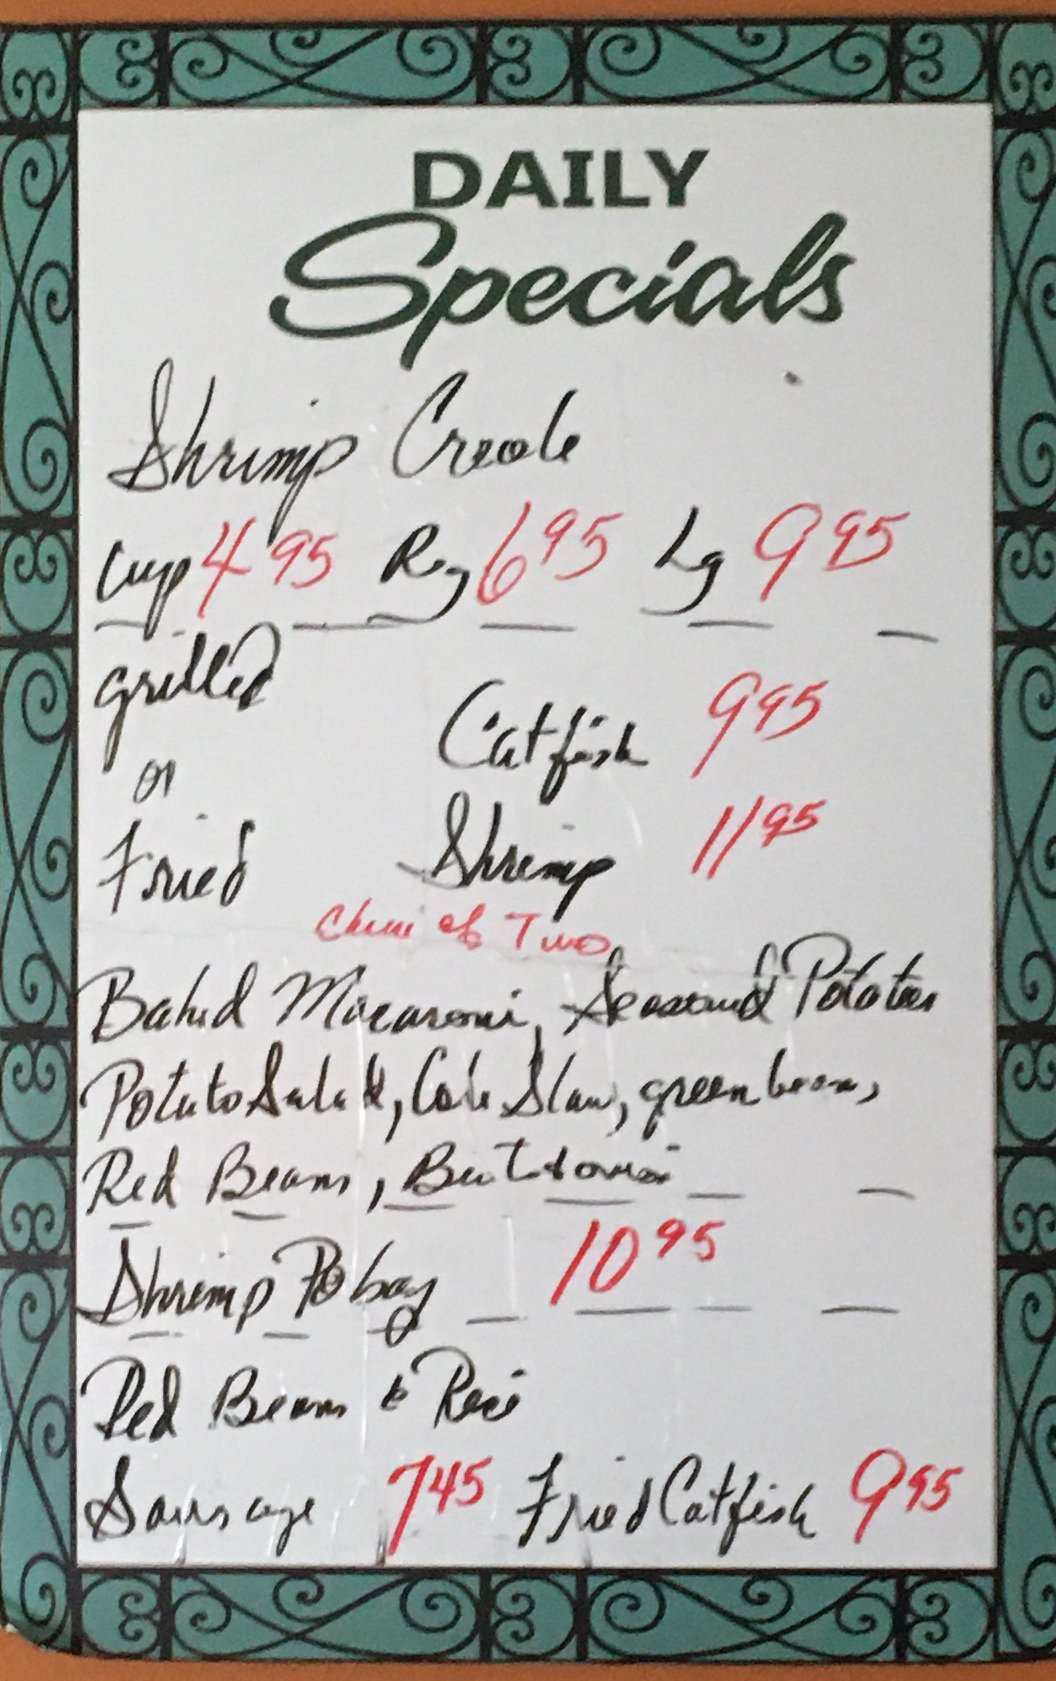 DAILY
Specials
Shrimp Creole
Cup 4 95 Rg 6 95 Lg 9 95
grilled
Catfish 9 95
or
Shrimp 11 95
Fried
of Two
Baked Macaroni, Seasoned Potatoes
Potato Salad, Cole Slaw, green beans,
Red Beans,
Shrimp Poboy 10 95
Red Beans & Rice
Sausage 7 45 Fried Catfish 9 95